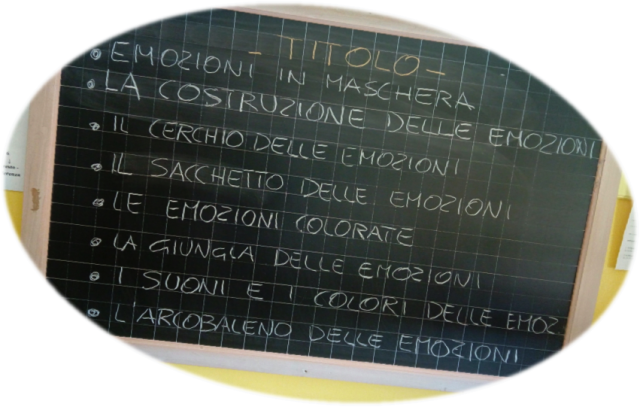 - TITOLO -
• EMOZIONI IN MASCHERA
• LA COSTRUZIONE DELLE EMOZIONI
• IL CERCHIO DELLE EMOZIONI
• IL SACCHETTO DELLE EMOZIONI
• LE EMOZIONI COLORATE
• LA GIUNGLA DELLE EMOZIONI
• I SUONI E I COLORI DELLE EMOZ.
• L'ARCOBALENO DELLE EMOZIONI